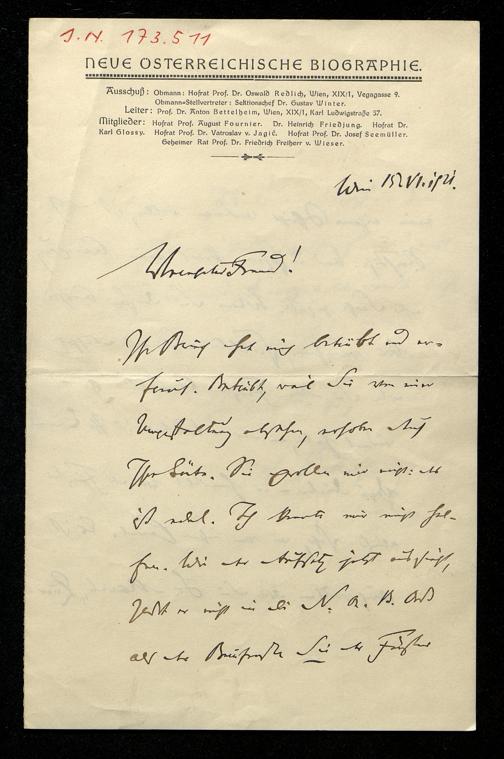 J. N. 173.511
NEUE ÖSTERREICHISCHE BIOGRAPHIE.
Ausschuß: Obmann: Hofrat Prof. Dr. Oswald Redlich, Wien, XIX/1, Vegagasse 9.
Obmann-Stellvertreter: Sektionschef Dr. Gustav Winter.
Leiter: Prof. Dr. Anton Bettelheim, Wien, XIX/1, Karl Ludwigstraße 57.
Mitglieder: Hofrat Prof. August Fournier. Dr. Heinrich Friedjung. Hofrat Dr.
Karl Glossy. Hofrat Prof. Dr. Vatroslav v. Jagič. Hofrat Prof. Dr. Josef Seemüller.
Geheimer Rat Prof. Dr. Friedrich Freiherr v. Wieser.
Wien 15. VI. 1921.
Verehrter Freund!
Ihr Brief hat mich betrübt und er-
freut. Betrübt, weil Sie von einer
Umgestaltung absehen, erfreut durch
Ihre Güte. Sie grollen mir nicht: das
ist edel. Ich konnte mir nicht hel-
fen. Wie der Aufsatz jetzt aussieht,
paßt er nicht in die N. Ö. B. Daß
als der Berufenste Sie der